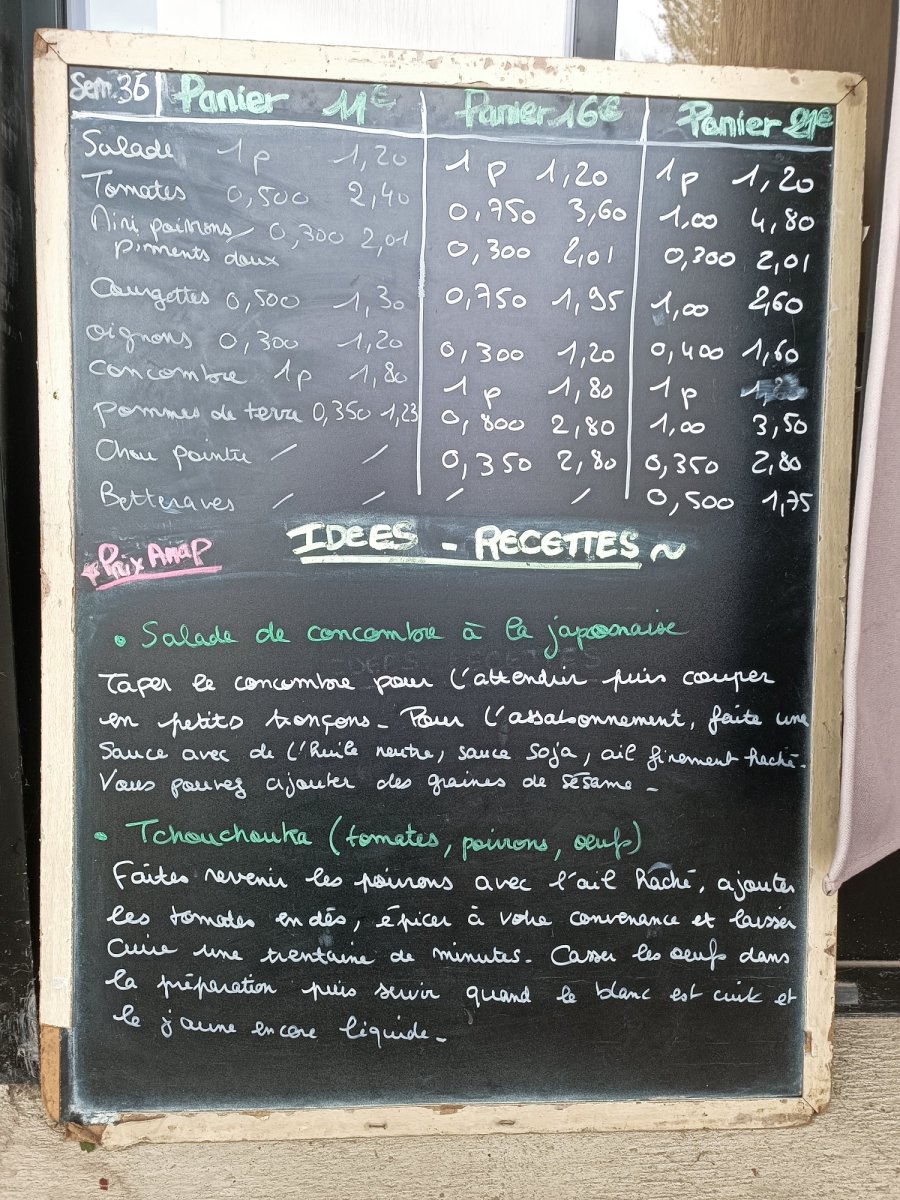 Sem. 36 Panier 11€ Panier 16€ Panier 21€
Salade 1 p 1,20 1 p 1,20 1 p 1,20
Tomates 0,500 2,40 0,750 3,60 1,00 4,80
Mini poivrons / 0,300 2,01 0,300 2,01 0,300 2,01
piments doux
Courgettes 0,500 1,30 0,750 1,95 1,00 2,60
oignons 0,300 1,20 0,300 1,20 0,400 1,60
concombre 1p 1,80 1 p 1,80 1 p
pommes de terre 0,350 1,23 0,800 2,80 1,00 3,50
Chou pointu / / 0,350 2,80 0,350 2,80
Betteraves / / / / 0,500 1,75
Prix Amap
IDEES - RECETTES ~
• Salade de concombre à la japonaise
Taper le concombre pour l'attendrir puis couper
en petits tronçons - Pour l'assaisonnement, faite une
Sauce avec de l'huile neutre, sauce soja, ail finement haché.
Vous pouvez ajouter des graines de sésame -
• Tchouchouka (tomates, poivrons, oeufs)
Faites revenir les poivrons avec l'ail haché, ajouter
les tomates en dés, épicer à votre convenance et laisser
cuire une trentaine de minutes. Casser les oeufs dans
la préparation puis servir quand le blanc est cuit et
le jaune encore liquide -